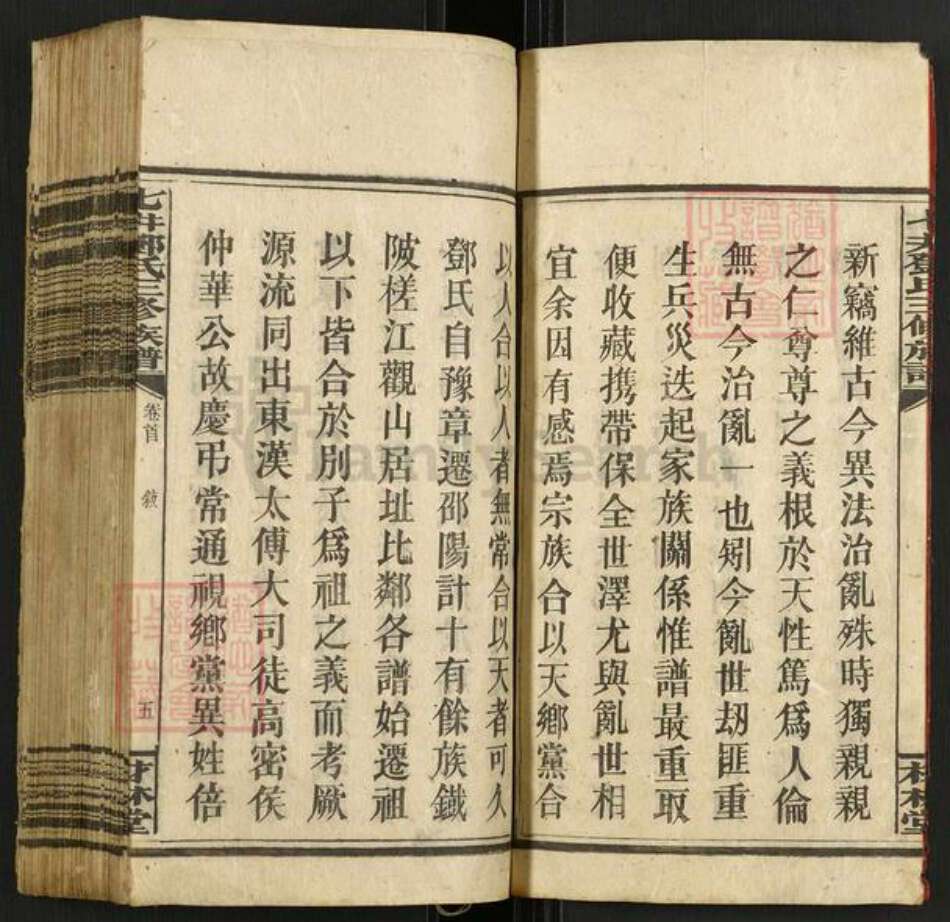 新竊維古今異法治亂殊時獨親親
之仁尊尊之義根於天性篤爲人倫
無古今治亂一也矧今亂世刧匪重
生兵災迭起家族關係惟譜最重取
便收藏携帶保全世澤尤與亂世相
宜余因有感焉宗族合以天鄉黨合
以人合以人者無常合以天者可久
鄧氏自豫章遷邵陽計十有餘族鐵
陂槎江觀山居址比鄰各譜始遷祖
以下皆合於別子爲祖之義而考厥
源流同出東漢太傅大司徒高密侯
仲華公故慶弔常通視鄉黨異姓倍
七井鄧氏三修族譜
卷首
敘
五